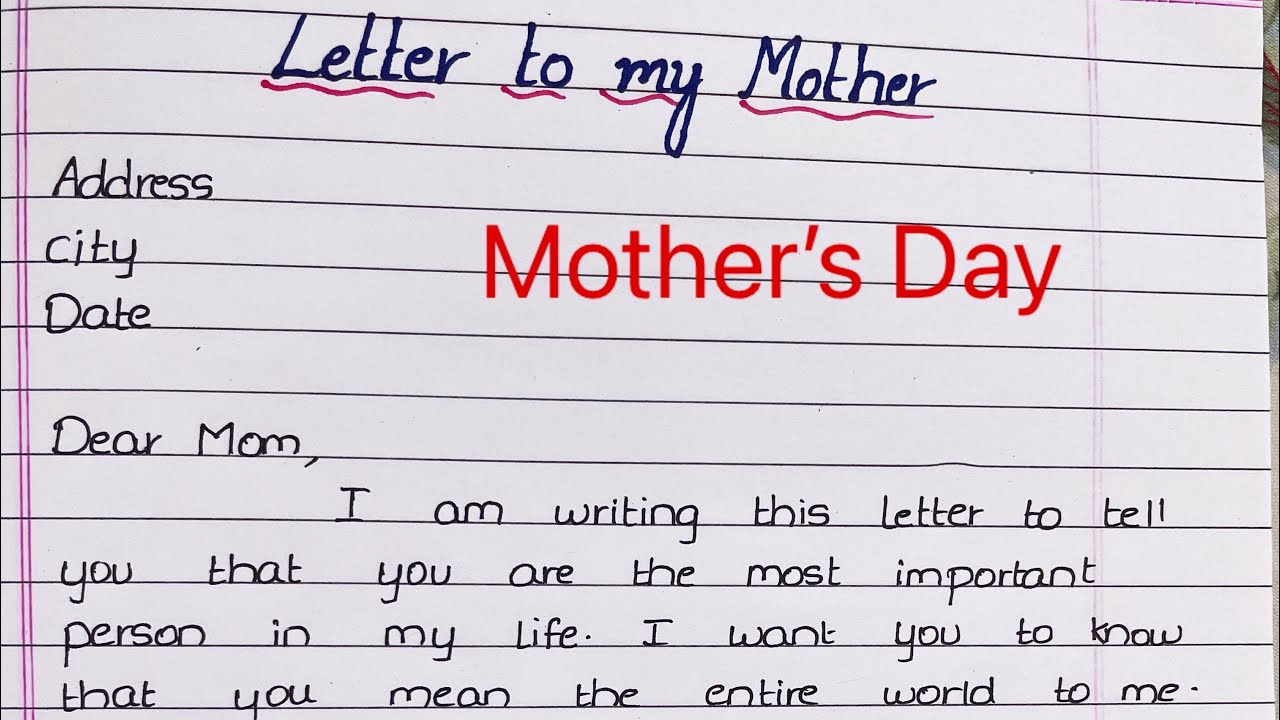 Letter to my Mother
Address
City
Mother's Day
Date
Dear Mom,
I am writing this letter to tell
you that you are the most important
person in my life. I want you to know
that you mean the entire world to me.